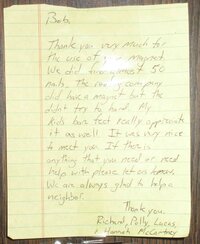 Bob,
Thank you very much for
the use of your magnet.
We did find almost 50
nails, the roofing company
did have a magnet but the
didn't try to hard. My
kids bare feet really appreciate
it as well. It was very nice
to meet you. If there is
anything that you need or need
help with please let us know.
We are always glad to help a
neighbor.
Thank you,
Richard, Polly, Lucas,
& Hannah McCartney